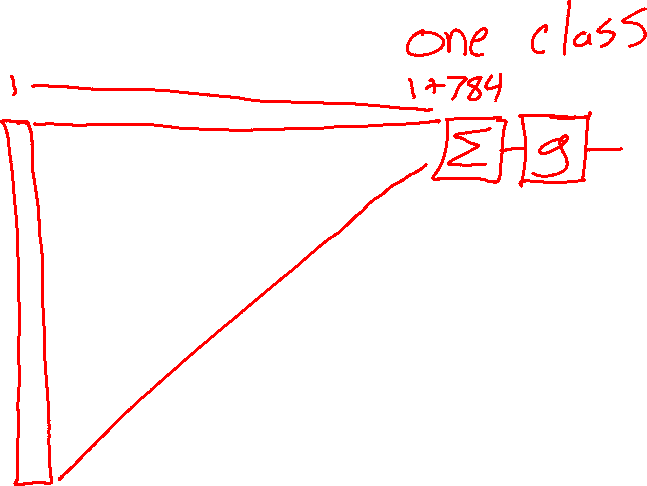 one class
1+784
1
Σ g